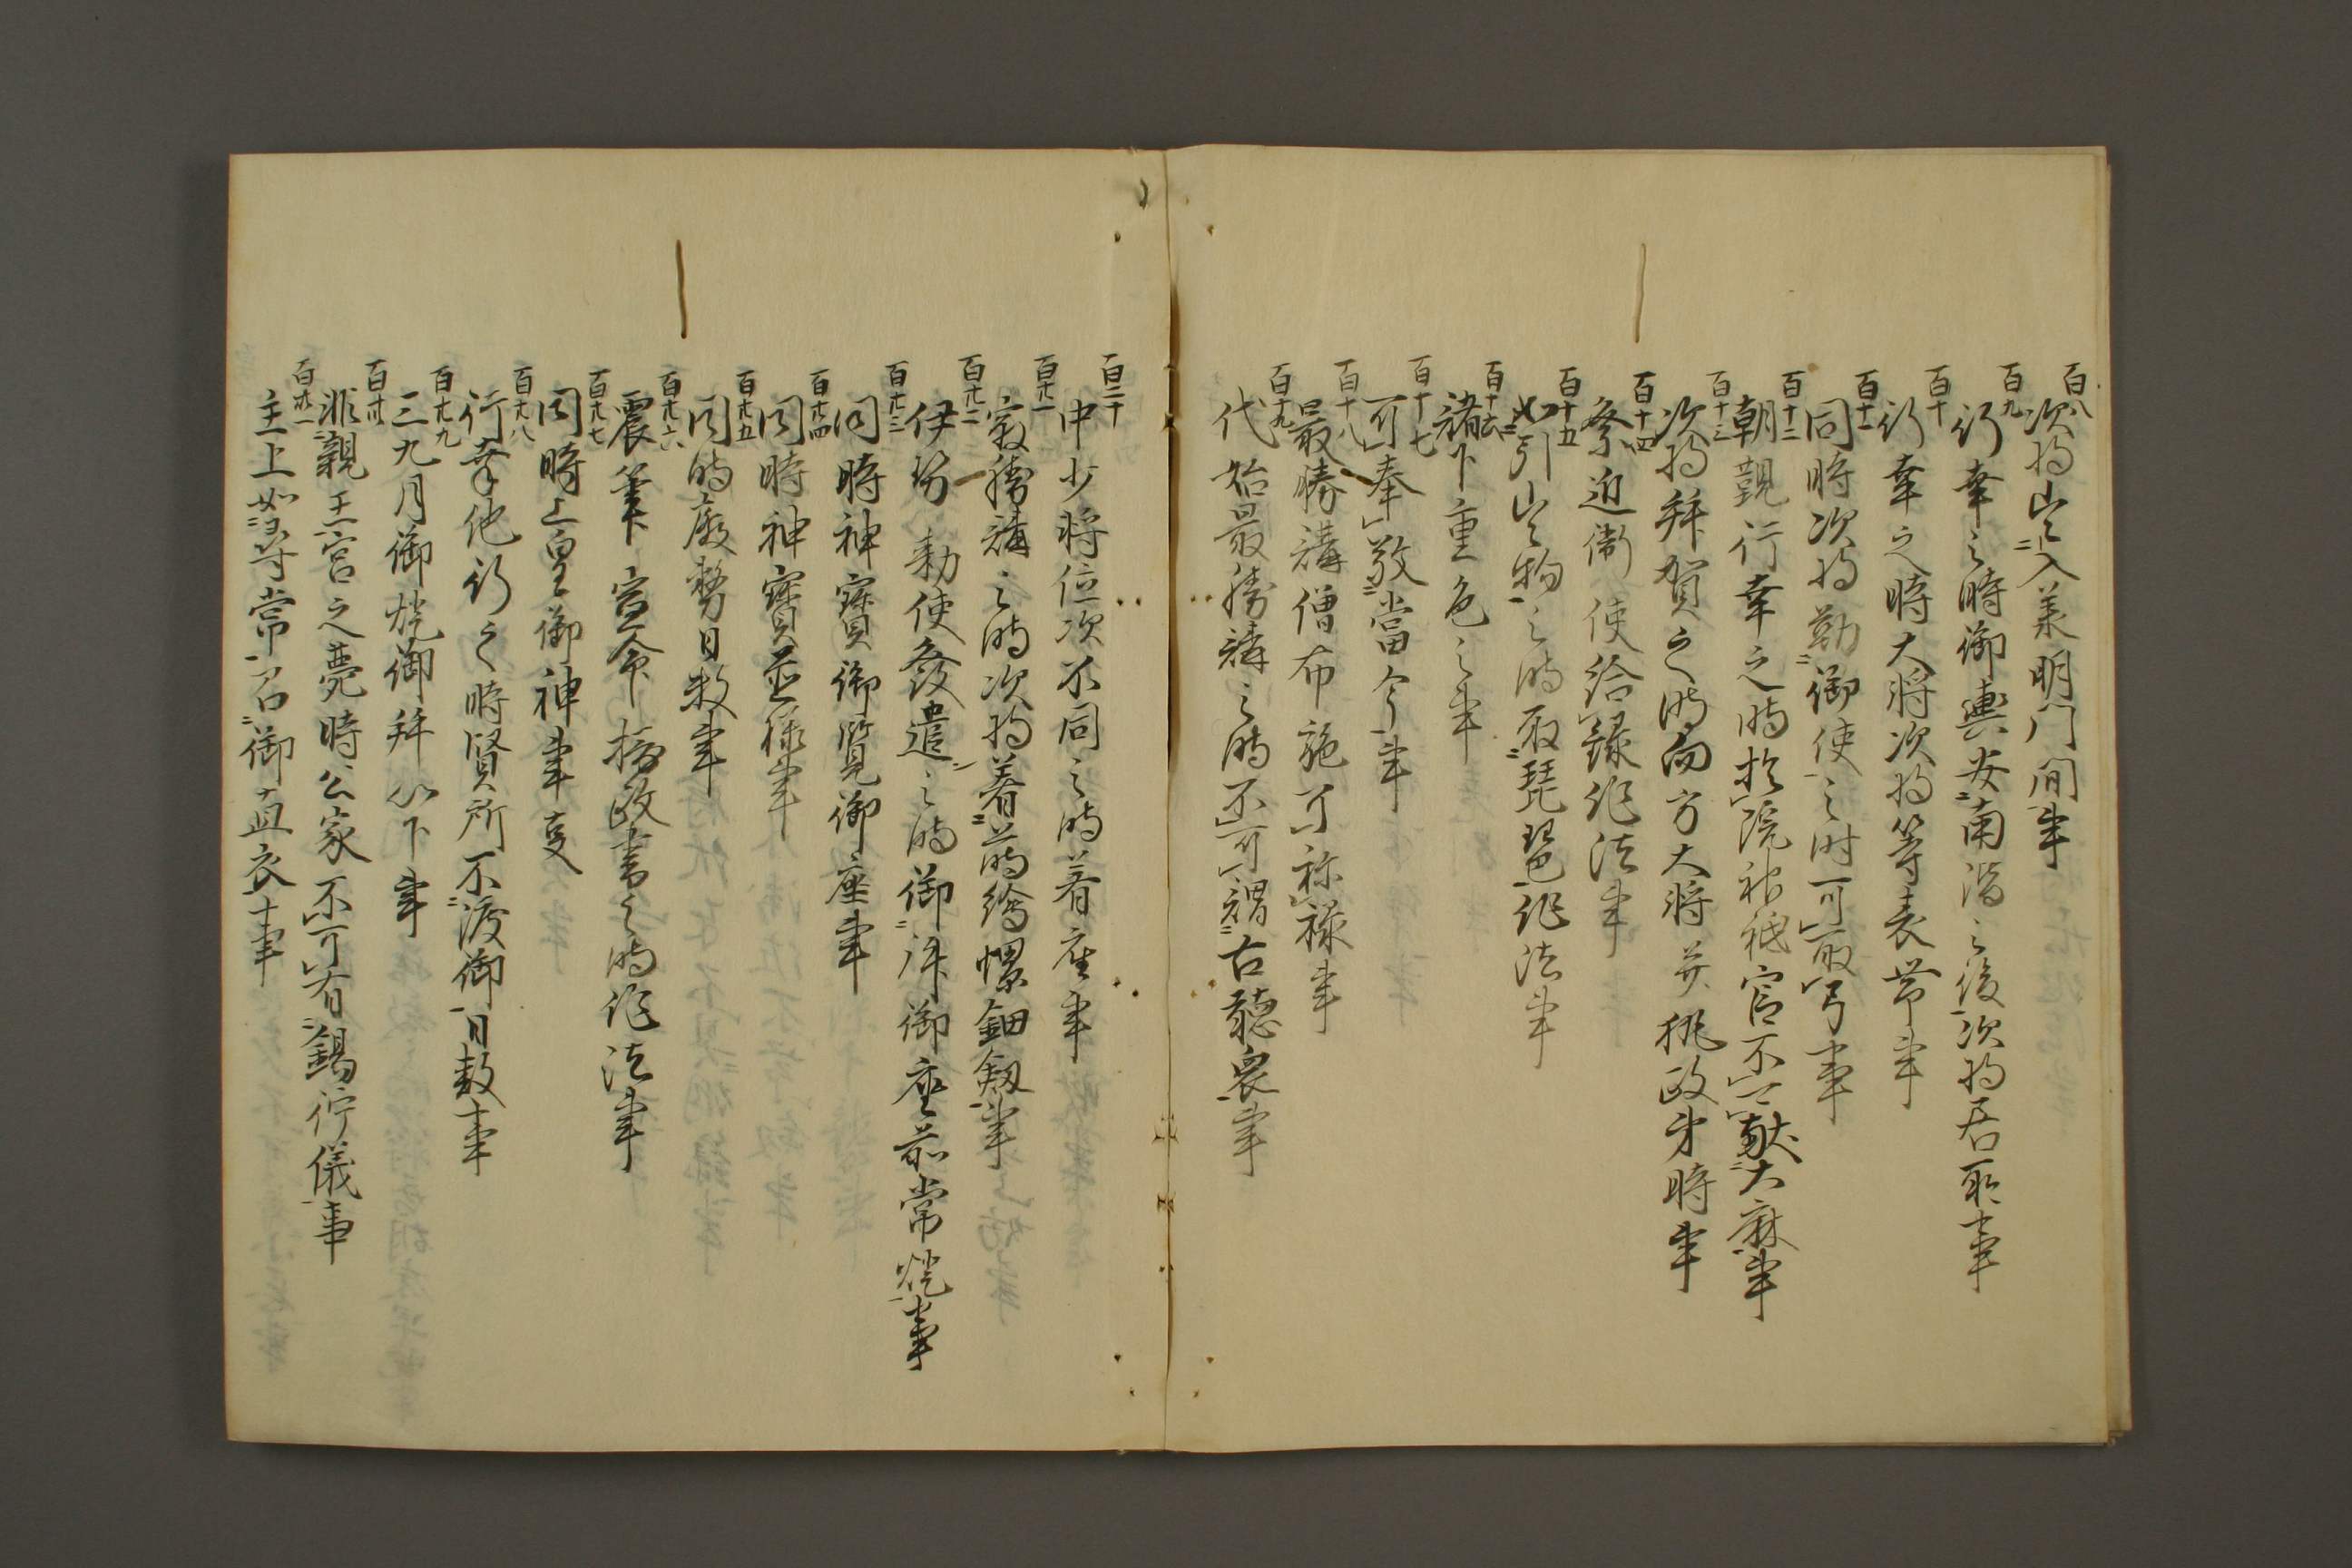 百八
次将出入美明門間事
百九
行幸之時御輿安南階之後次将居所事
百十
行幸之時大将次将等表帯事
百十一
同時次将勤御使之時可取弓事
百十二
朝覲行幸之時於院神祇官不可献大麻事
百十三
次将拝賀之時向方大将并執政弟時事
百十四
祭近衛使給録作法事
百十五
如引出物之時取琵琶作法事
百十六
諸下重色之事
百十七
可奉敬當今事
百十八
最勝講僧布施可称禄事
百十九
代始最勝講之時不可謂古聴衆事
百二十
中少将位次不同之時着座事
百廿一
最勝講之時次将着蒔繪螺鈿劔事
百廿二
伊勢勅使發遣之時御拝御座前常燈事
百廿三
同時神寶御覧御座事
百廿四
同時神寶並様事
百廿五
同時廢務日数事
百廿六
震筆宣命摂政書之時作法事
百廿七
同時上皇御神事支
百廿八
行幸他行之時賢所不渡御日数事
百廿九
三九月御燈御拝以下事
百卅
准親王宮之薨時公家不可有錫紵儀事
百卅一
主上如尋常召御直衣事